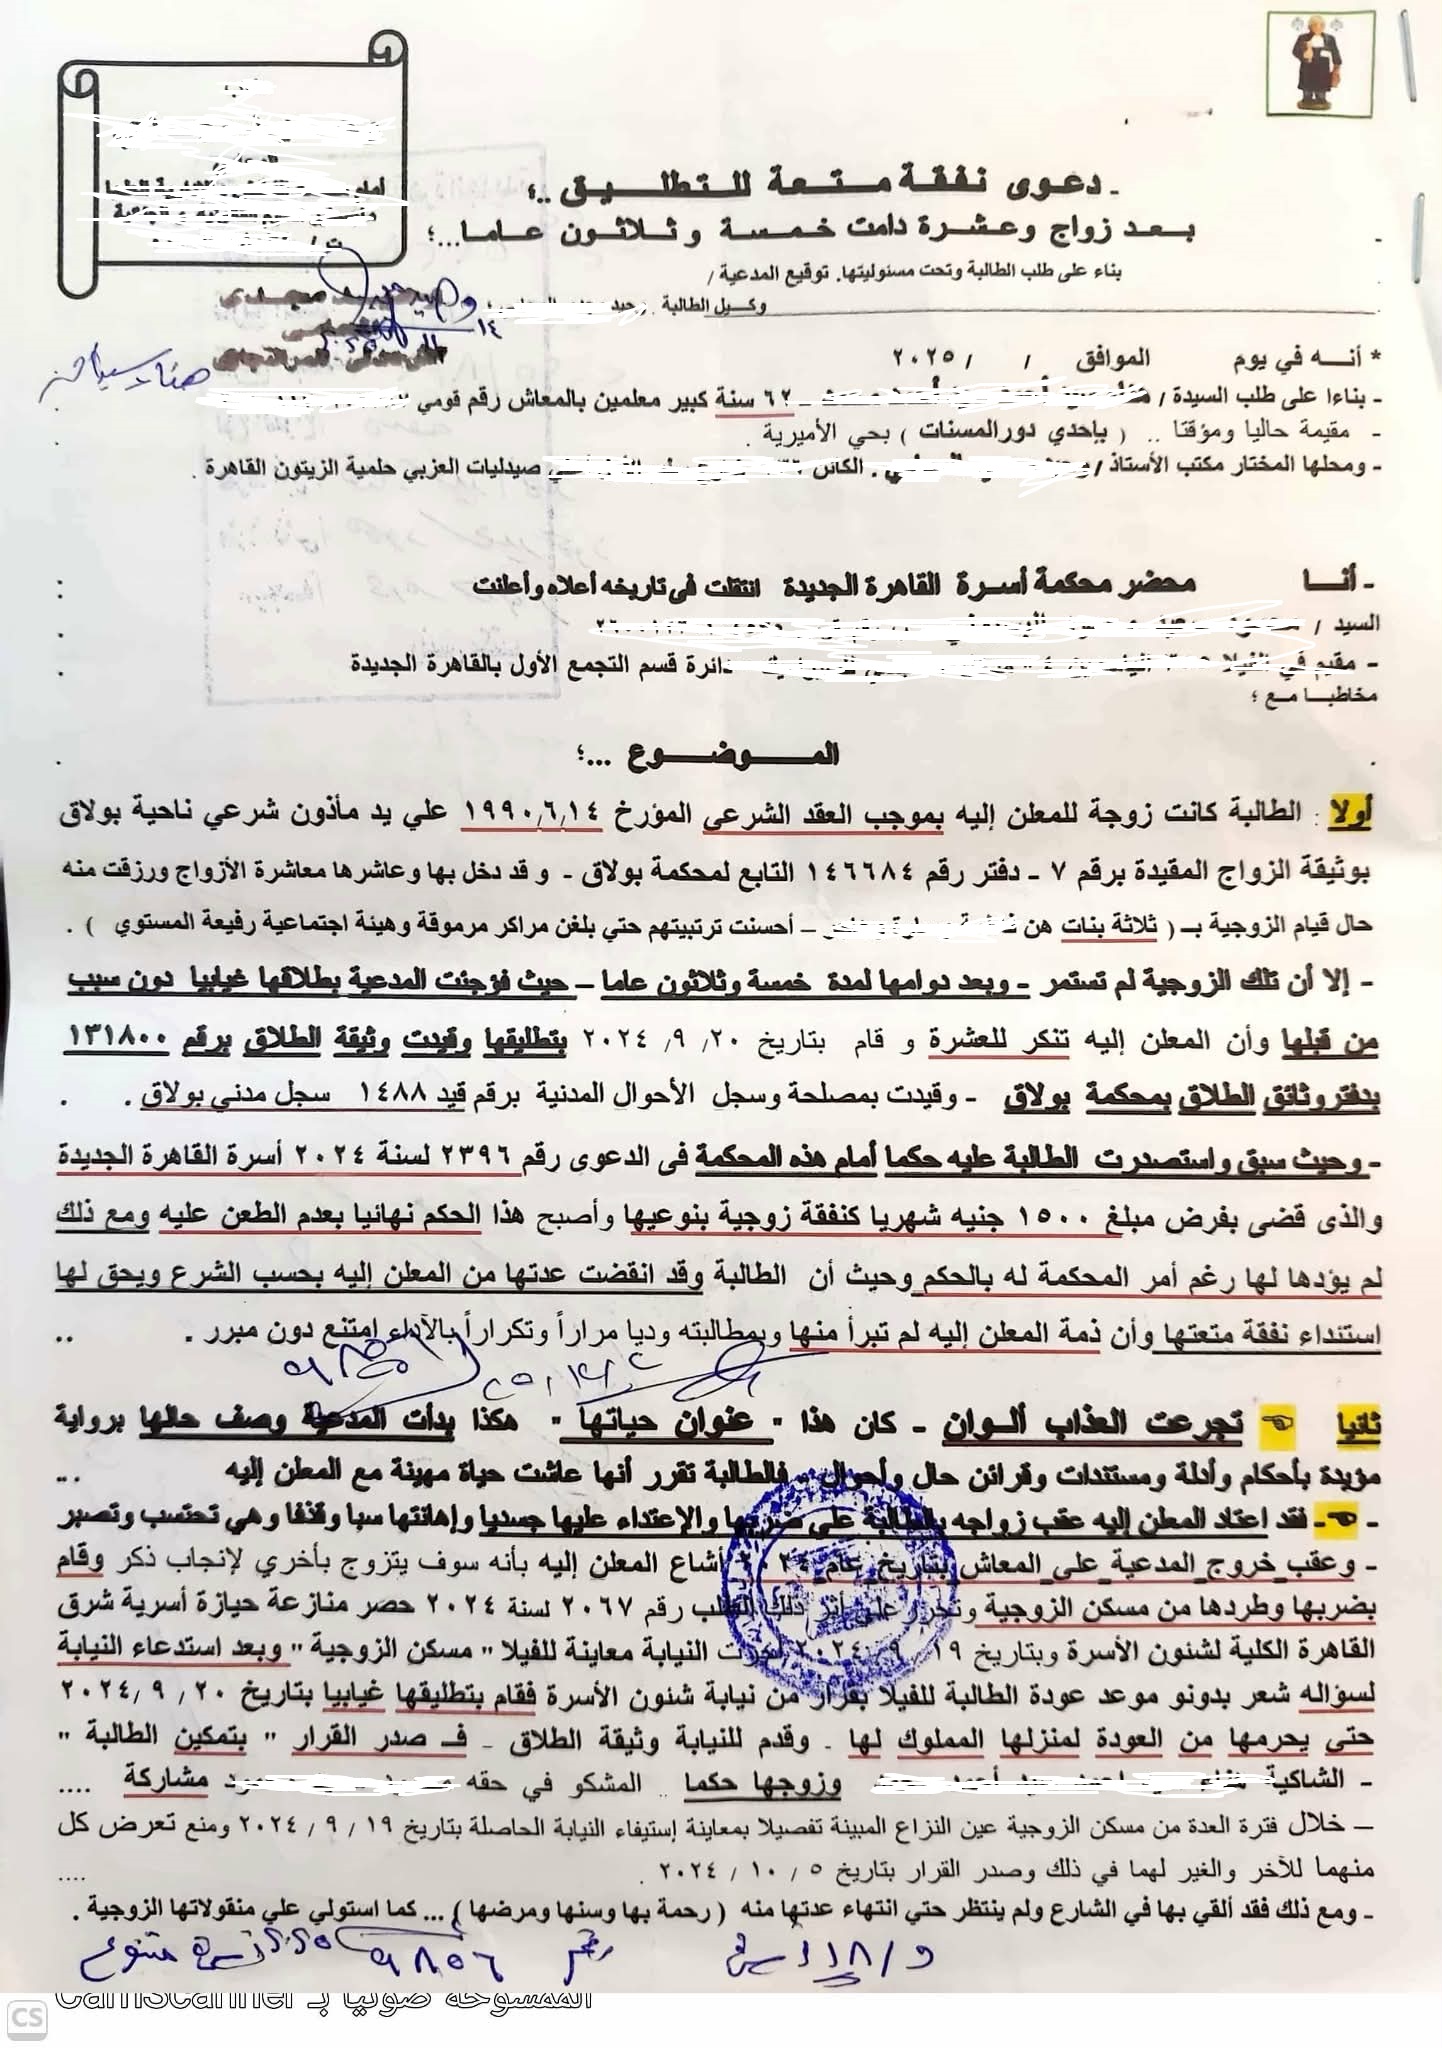 ـ دعوى نفقة متعة للتطليق ..؛
بعد زواج وعشرة دامت خمسة وثلاثون عاما...؛
بناء على طلب الطالبة وتحت مسئوليتها. توقيع المدعية /
وكيل الطالبة
* أنه في يوم الموافق / / ٢٠٢٥
- بناءا على طلب السيدة / ٦٢ سنة كبير معلمين بالمعاش رقم قومي
- مقيمة حاليا ومؤقتا .. ( بإحدي دور المسنات ) بحي الأميرية .
- ومحلها المختار مكتب الأستاذ / الكائن صيدليات العزبي حلمية الزيتون القاهرة .
- أنا محضر محكمة أسرة القاهرة الجديدة انتقلت فى تاريخه أعلاه وأعلنت :
السيد /
- مقيم في الفيلا دائرة قسم التجمع الأول بالقاهرة الجديدة
مخاطبا مع ؛
الموضوع ...؛
أولا : الطالبة كانت زوجة للمعلن إليه بموجب العقد الشرعى المؤرخ ١٩٩٠,٦,١٤ علي يد مأذون شرعي ناحية بولاق
بوثيقة الزواج المقيدة برقم ٧ - دفتر رقم ١٤٦٦٨٤ التابع لمحكمة بولاق - و قد دخل بها وعاشرها معاشرة الأزواج ورزقت منه
حال قيام الزوجية بـ ( ثلاثة بنات هن – أحسنت ترتبيتهم حتي بلغن مراكز مرموقة وهيئة اجتماعية رفيعة المستوي ) .
- إلا أن تلك الزوجية لم تستمر - وبعد دوامها لمدة خمسة وثلاثون عاما – حيث فؤجئت المدعية بطلاقها غيابيا دون سبب
من قبلها وأن المعلن إليه تنكر للعشرة و قام بتاريخ ٢٠ ,٩ ,٢٠٢٤ بتطليقها وقيدت وثيقة الطلاق برقم ١٣١٨٠٠
بدفتر وثائق الطلاق بمحكمة بولاق - وقيدت بمصلحة وسجل الأحوال المدنية برقم قيد ١٤٨٨ سجل مدني بولاق . .
- وحيث سبق واستصدرت الطالبة عليه حكما أمام هذه المحكمة فى الدعوى رقم ٢٣٩٦ لسنة ٢٠٢٤ أسرة القاهرة الجديدة
والذى قضى بفرض مبلغ ١٥٠٠ جنيه شهريا كنفقة زوجية بنوعيها وأصبح هذا الحكم نهائيا بعدم الطعن عليه ومع ذلك
لم يؤدها لها رغم أمر المحكمة له بالحكم وحيث أن الطالبة وقد انقضت عدتها من المعلن إليه بحسب الشرع ويحق لها
استنداء نفقة متعتها وأن ذمة المعلن إليه لم تبرأ منها وبمطالبته وديا مراراً وتكراراً بالأداء امتنع دون مبرر . ..
ثانيا تجرعت العذاب ألوان - كان هذا " عنوان حياتها " هكذا بدأت المدعية وصف حالها برواية
مؤيدة بأحكام وأدلة ومستندات وقرائن حال وأحوال - فالطالبة تقرر أنها عاشت حياة مهينة مع المعلن إليه ..
- فقد اعتاد المعلن إليه عقب زواجه بالطالبة على ضربها والإعتداء عليها جسديا وإهانتها سبا وقذفا وهي تحتسب وتصبر
- وعقب خروج المدعية على المعاش بتاريخ عام ٢٠٢٤ أشاع المعلن إليه بأنه سوف يتزوج بأخري لإنجاب ذكر وقام
بضربها وطردها من مسكن الزوجية وتحرر على أثر ذلك الطلب رقم ٢٠٦٧ لسنة ٢٠٢٤ حصر منازعة حيازة أسرية شرق
القاهرة الكلية لشئون الأسرة وبتاريخ ١٩ / ٩ / ٢٠٢٤ أجرت النيابة معاينة للفيلا " مسكن الزوجية " وبعد استدعاء النيابة
لسؤاله شعر بدونو موعد عودة الطالبة للفيلا بقرار من نيابة شئون الأسرة فقام بتطليقها غيابيا بتاريخ ٢٠ / ٩ /٢٠٢٤
حتى يحرمها من العودة لمنزلها المملوك لها . وقدم للنيابة وثيقة الطلاق - فـ صدر القرار " بتمكين الطالبة "
- الشاكية وزوجها حكما .. المشكو في حقه مشاركة ....
– خلال فترة العدة من مسكن الزوجية عين النزاع المبينة تفصيلا بمعاينة إستيفاء النيابة الحاصلة بتاريخ ١٩ / ٩ / ٢٠٢٤ ومنع تعرض كل
منهما للآخر والغير لهما في ذلك وصدر القرار بتاريخ ٥ / ١٠ / ٢٠٢٤ . ....
- ومع ذلك فقد ألقي بها في الشارع ولم ينتظر حتي انتهاء عدتها منه ( رحمة بها وسنها ومرضها ) ... كما استولي علي منقولاتها الزوجية .
الممسوحة ضوئيا بـ CamScanner
CS